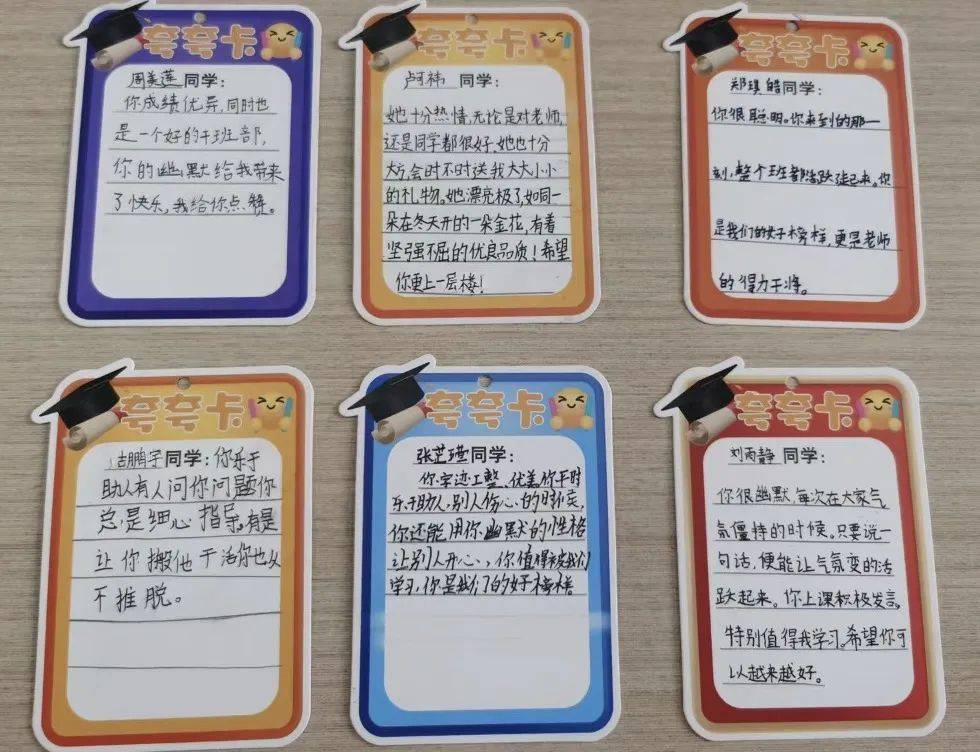 夸夸卡
周美莲同学：
你成绩优异，同时也
是一个好的干班部，
你的幽默给我带来
了快乐，我给你点赞。
夸夸卡
卢祎 同学：
她十分热情，无论是对老师，
还是同学都很好，她也十分
大方，会时不时送我大大小小
的礼物。她漂亮极了，如同一
朵在冬天开的一朵金花，有着
坚强不屈的优良品质！希望
你更上一层楼！
夸夸卡
郑琪皓同学：
你很聪明。你来到的那一
刻，整个班都活跃起来。你
是我们的好榜样，更是老师
的得力干将。
夸夸卡
鹏宇同学：你乐于
助人有人问你问题你
总是细心指导。有是
让你搬他干活你也从
不推脱。
夸夸卡
张芷瑾同学：
你字迹工整，优美你平时
乐于助人，别人伤心的时候，
你还能用你幽默的性格
让别人开心，你值得我们
学习，你是我们的好榜样
夸夸卡
刘雨静 同学：
你很幽默，每次在大家气
氛僵持的时候。只要说一
句话，便能让气氛变的活
跃起来。你上课积极发言，
特别值得我学习。希望你可
以越来越好。